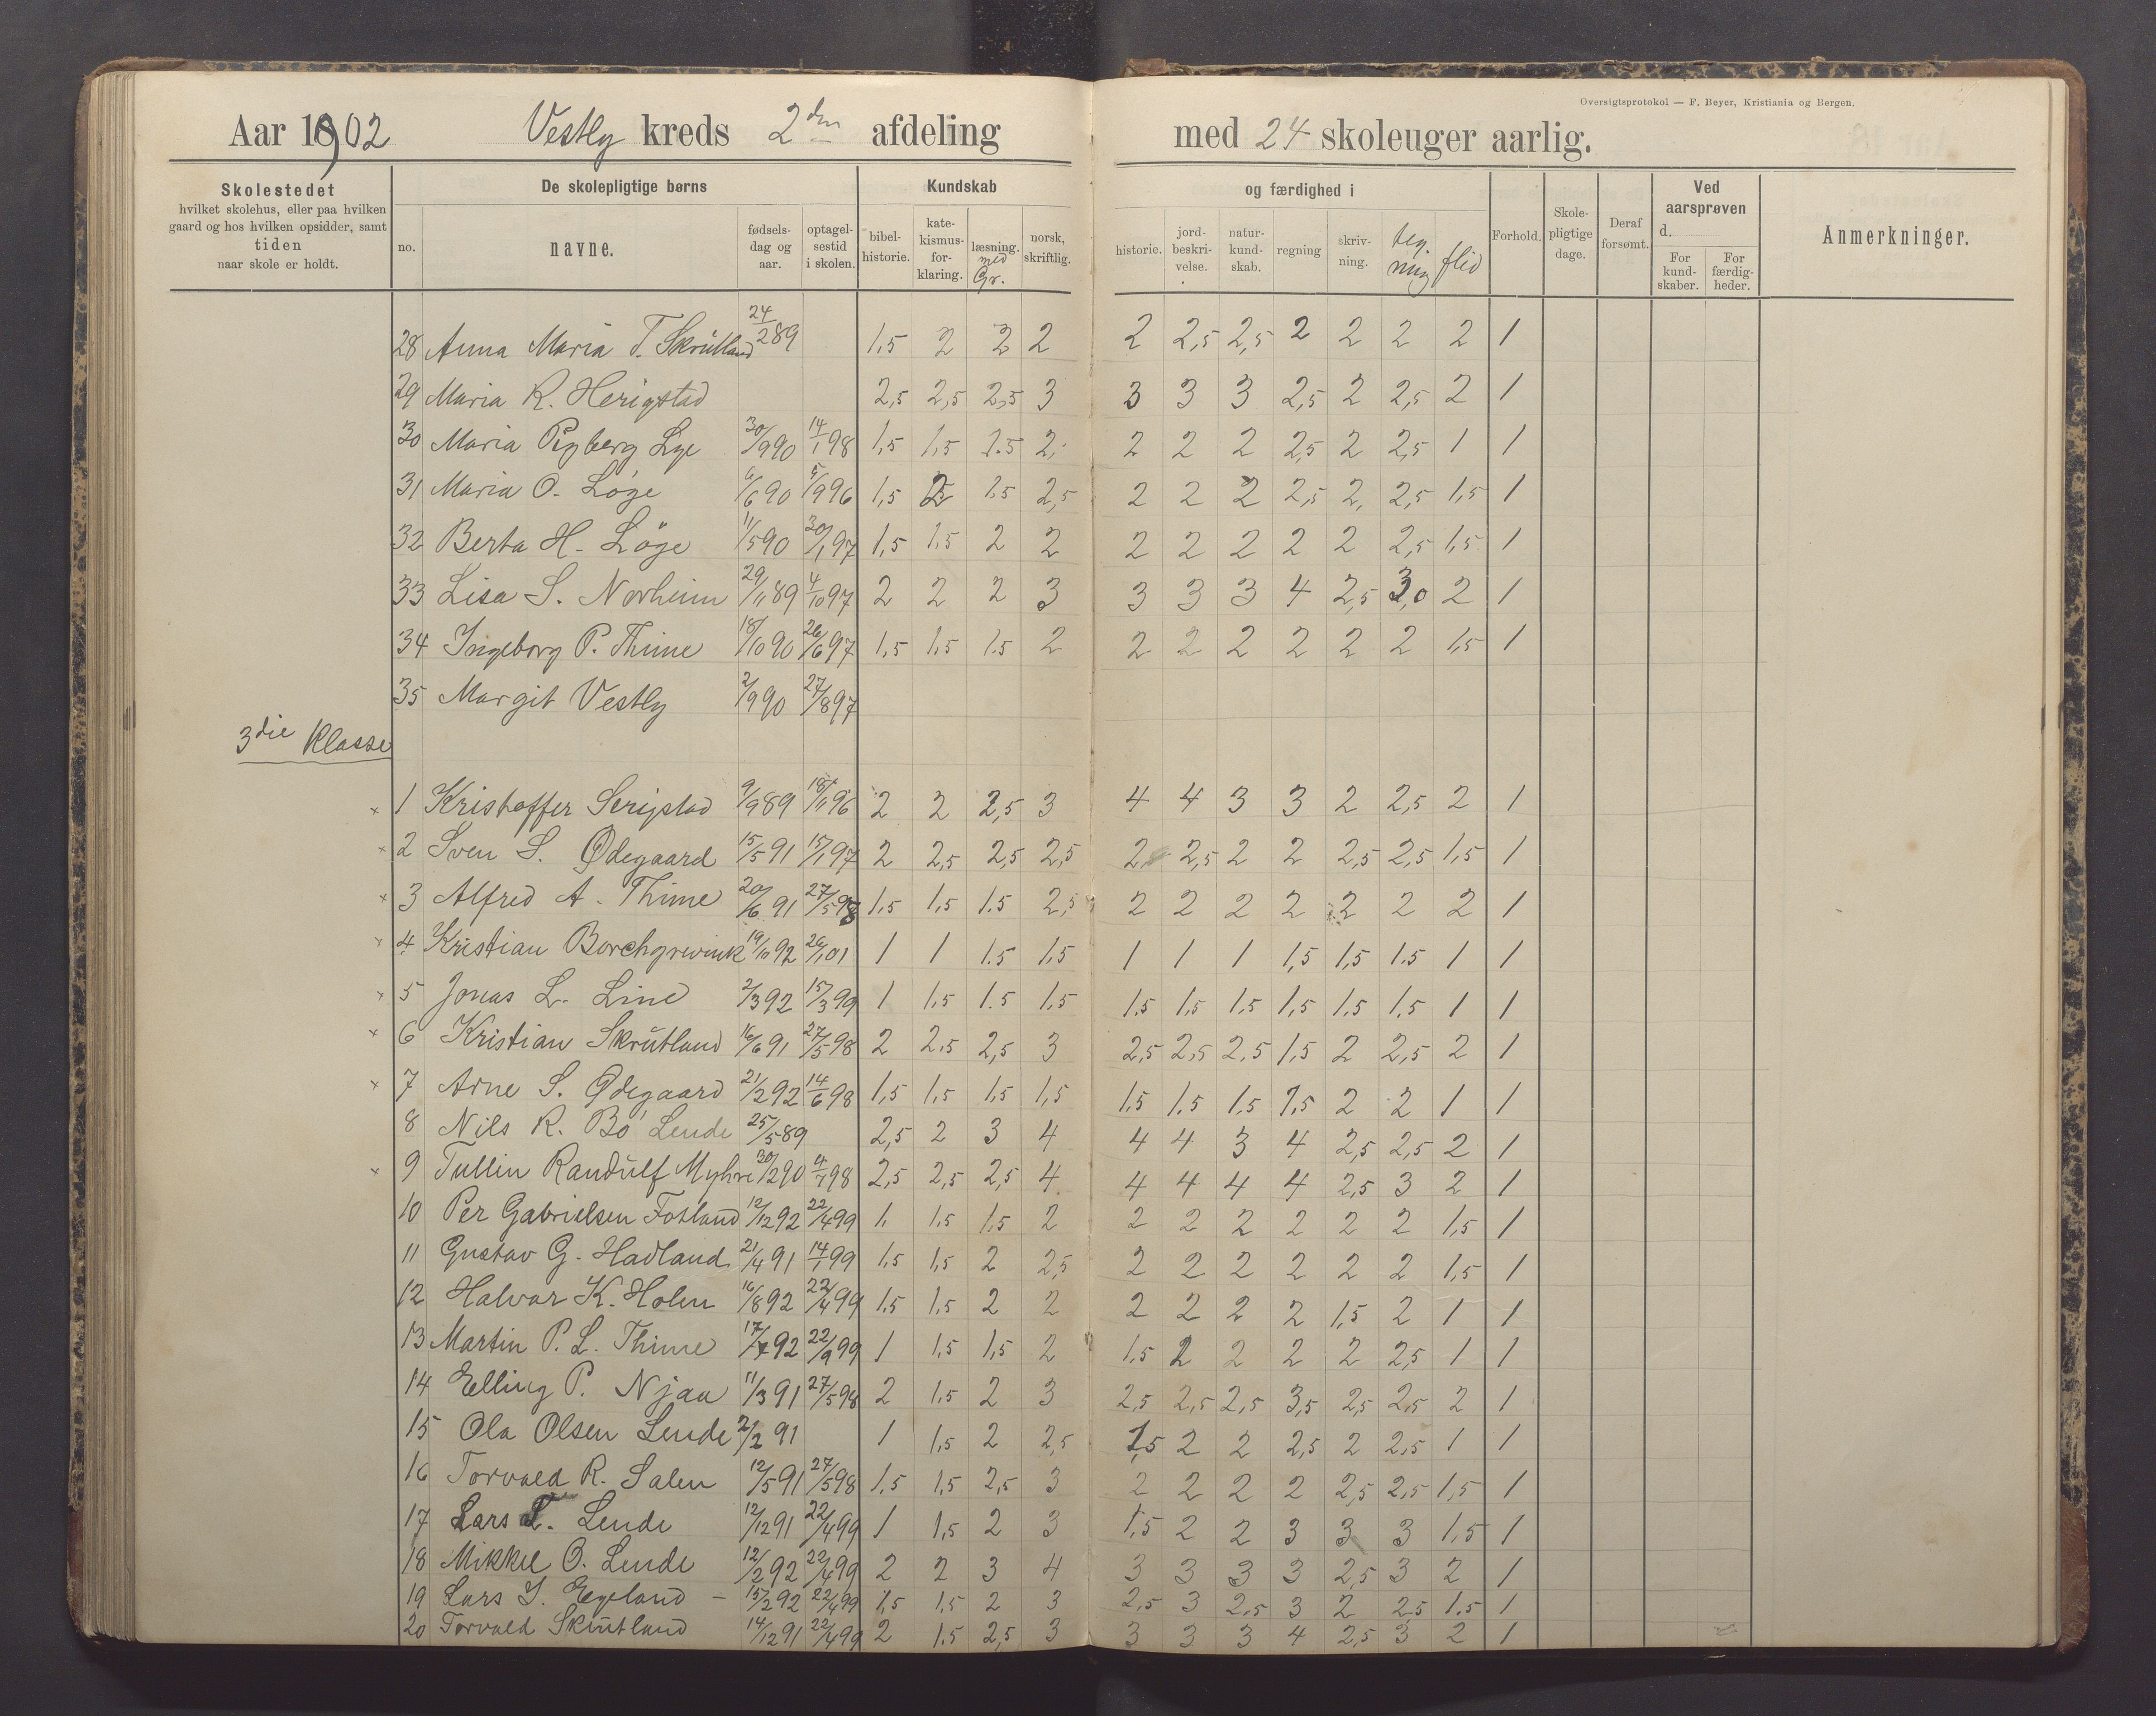 Oversigtsprotokol — F. Beyer, Kristiania og Bergen.
Aar 1902 Vestly kreds 2den afdeling med 24 skoleuger aarlig.
Skolestedet hvilket skolehus, eller paa hvilken gaard og hos hvilken opsidder, samt tiden naar skole er holdt.
De skolepligtige børns
no. navne. fødselsdag og aar. optagelsestid i skolen.
Kundskab og færdighed i
bibelhistorie. katekismusforklaring. læsning. med Gr. norsk, skriftlig. historie. jordbeskrivelse. naturkundskab. regning skrivning. tegning flid
Forhold. Skolepligtige dage. Deraf forsømt. Ved aarsprøven d. For kundskaber. For færdigheder. Anmerkninger.
28 Anna Maria T. Skrutland 24/2 89 1,5 2 2 2 2 2,5 2,5 2 2 2 2 1
29 Maria R. Herigstad 2,5 2,5 2,5 3 3 3 3 2,5 2 2,5 2 1
30 Maria Lye 30/9 90 14/1 98 1,5 1,5 1.5 2 2 2 2 2,5 2 2,5 1 1
31 Maria O. Löge 6/6 90 5/9 96 1,5 2 1.5 2,5 2 2 2 2,5 2 2,5 1,5 1
32 Berta H. Löge 11/5 90 30/1 97 1,5 1.5 2 2 2 2 2 2 2 2,5 1,5 1
33 Lisa S. Norheim 29/11 89 4/10 97 2 2 2 3 3 3 3 4 2,5 3,0 2 1
34 Ingeborg P. Thime 18/10 90 26/6 97 1,5 1,5 1.5 2 2 2 2 2 2 2 1,5 1
35 Margit Vestly 2/9 90 27/8 97
3die Klasse
1 Kristoffer Serigstad 9/9 89 18/11 96 2 2 2,5 3 4 4 3 3 2 2,5 2 1
2 Sven S. Ødegaard 15/5 91 15/1 97 2 2,5 2,5 2,5 2 2,5 2 2 2,5 2,5 1,5 1
3 Alfred A. Thime 20/6 91 27/5 98 1,5 1,5 1.5 2,5 2 2 2 2 2 2 2 1
4 Kristian Borchgrevink 19/10 92 26/1 01 1 1 1.5 1,5 1 1 1 1,5 1,5 1.5 1 1
5 Jonas L. Line 2/3 92 15/3 99 1 1,5 1.5 1,5 1.5 1,5 1,5 1,5 1,5 1,5 1 1
6 Kristian Skrutland 16/6 91 27/5 98 2 2.5 2,5 3 2,5 2,5 2.5 1,5 2 2,5 2 1
7 Arne S. Ødegaard 21/2 92 14/6 98 1,5 1,5 1,5 1,5 1.5 1.5 1,5 1.5 2 2 1 1
8 Nils R. Bö Lende 25/5 89 2,5 2 3 4 4 4 3 4 2,5 2,5 2 1
9 Tullin Randulf Myhre 30/2 90 4/1 98 2,5 2,5 2,5 4 4 4 4 4 2,5 3 2 1
10 Per Gabrielsen Fotland 12/12 92 22/4 99 1. 1,5 1,5 2 2 2 2 2 2 2 1,5 1
11 Gustav G. Hadland 21/4 91 14/1 99 1,5 1,5 2 2,5 2 2 2 2 2 2 1,5 1
12 Halvar K. Holen 16/8 92 22/4 99 1.5 1,5 2 2 2 2 2 2 1,5 2 1 1
13 Martin P. L. Thime 92 22/9 99 1 1,5 1,5 2 1,5 2 2 2 2 2,5 1 1
14 Elling P. Njaa 11/3 91 27/5 98 2 1,5 2 3 2,5 2,5 2,5 3,5 2,5 2,5 2 1
15 Ola Olsen Lende 2/2 91 1 1,5 2 2,5 1,5 2 2 2,5 2 2,5 1 1
16 Torvald R. Salen 12/5 91 27/5 98 1,5 1,5 2,5 3 2 2 2 2 2,5 2,5 1,5 1
17 Lars L. Lende 12/12 91 22/4 99 1 1,5 2 3 1,5 2 2 3 3 3 1,5 1
18 Mikkel O. Lende 12/2 92 22/4 99 2 2 3 4 3 3 3 3 2,5 3 2 1
19 Lars J. Egeland 15/2 92 22/4 99 1,5 1,5 2 3 2,5 3 2,5 3 2 2,5 1.5 1
20 Torvald Skrutland 14/12 91 22/4 99 2 1.5 2,5 3 3 3 3 4 2,5 3 2 1